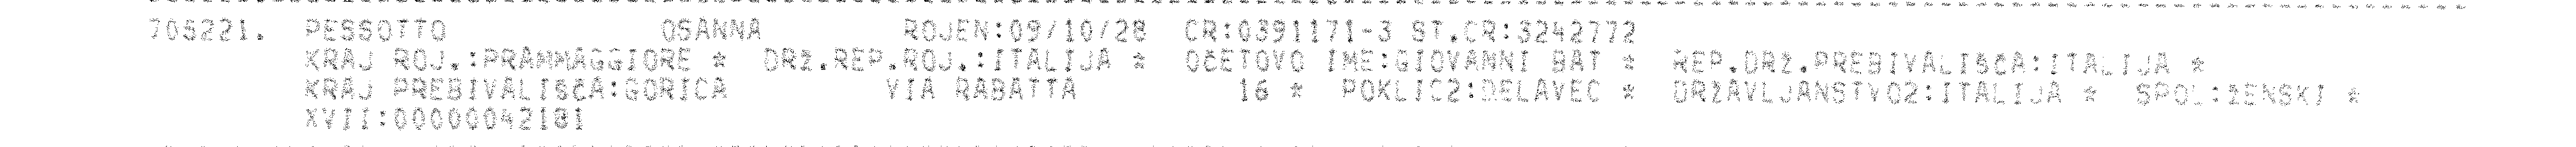 705221. PESSOTTO OSANNA ROJEN:09/10/28 CR:0391171-3 ST.CR:3242772
KRAJ ROJ.:PRAMMAGGIORE * DRŽ.REP.ROJ.:ITALIJA * OČETOVO IME:GIOVANNI BAT * REP.DRŽ.PREBIVALIŠČA:ITALIJA *
KRAJ PREBIVALIŠČA:GORICA VIA RABATTA 16 * POKLIC2:DELAVEC * DRŽAVLJANSTVO2:ITALIJA * SPOL:ŽENSKI *
XVII:00000042181